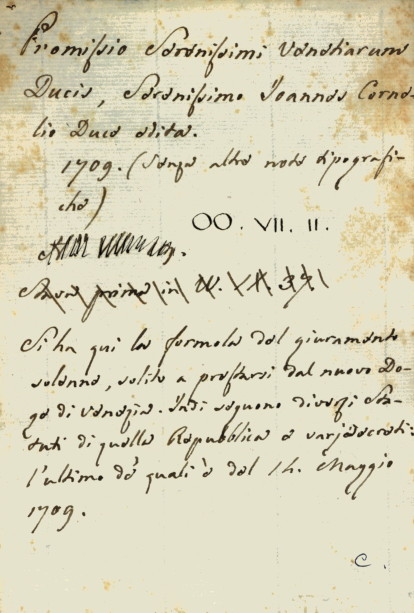 Promissio Serenissimi Venetiarum
Ducis, Serenissimo Joanne Corne-
lio Duce edita.
1709. (Senza altre note tipografi-
che)
OO. VII. 11.
prima in
Si ha qui la formola del giuramento
solenne, solito a prestarsi dal nuovo Do-
ge di Venezia. Indi seguono diversi Sta-
tuti di quella Repubblica e varj decreti:
l'ultimo de' quali è del 14. Maggio
1709.
C.